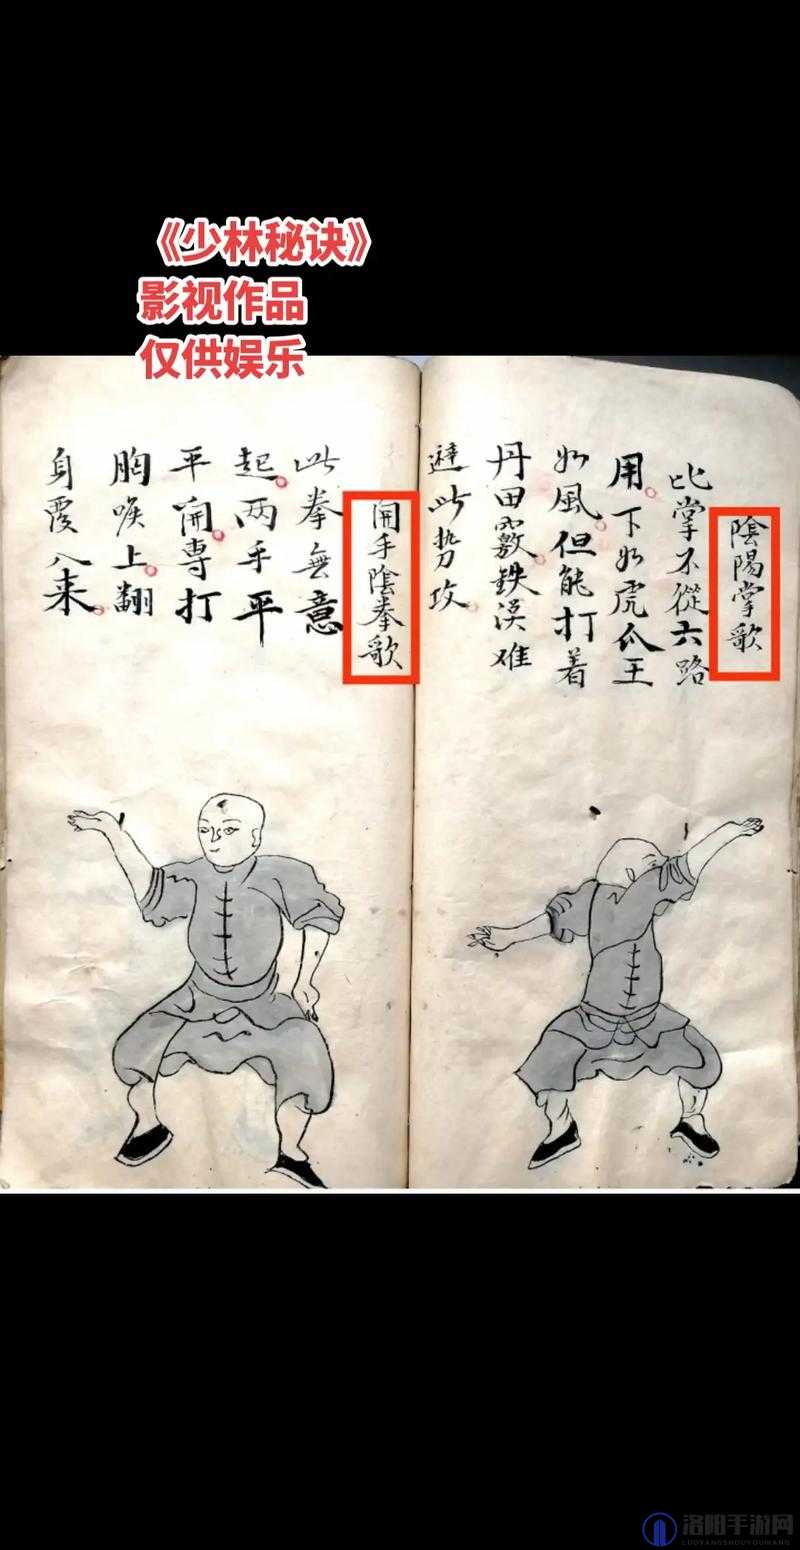 《少林秘诀》
影视作品
仅供娱乐
陰陽掌歌
此掌不從六路
用下如虎爪王
如風但能打着
丹田竅鉄漢难
避此势攻
開手陰拳歌
此拳無意
起两手平
平開専打
胸喉上翻
身覆入来
洛阳手游网
LUOYANGSHOUYOUWANG